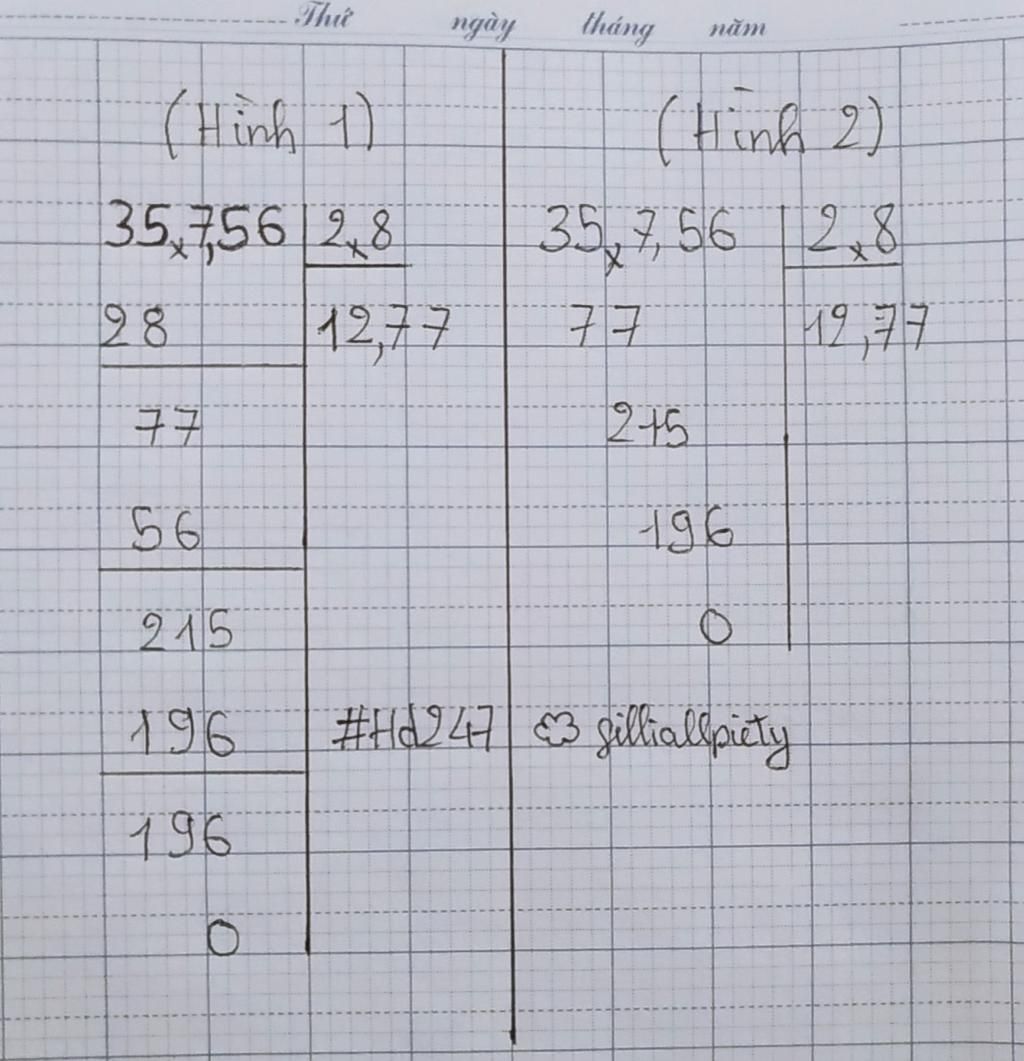 Thứ ngày tháng năm
(Hình 1)
35,7,56 2,8
28 12,77
77
56
215
196
196
0
(Hình 2)
35,7,56 2,8
77 12,77
215
196
0
#Hd247 <3 gilliallpiety